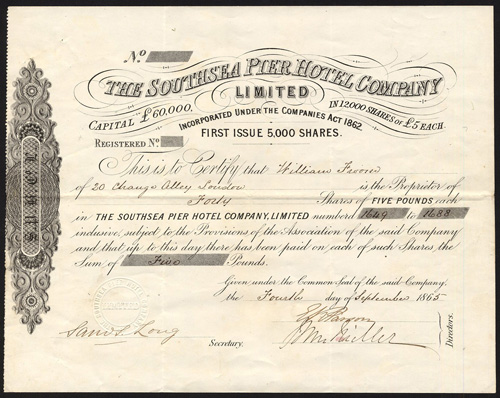 No
THE SOUTHSEA PIER HOTEL COMPANY
LIMITED
CAPITAL £60,000. IN 12000 SHARES OF £5 EACH.
INCORPORATED UNDER THE COMPANIES ACT 1862.
FIRST ISSUE 5,000 SHARES.
REGISTERED No
This is to Certify that William
of 20 Change Alley London is the Proprietor of
Forty Shares of FIVE POUNDS each
in THE SOUTHSEA PIER HOTEL COMPANY, LIMITED numbered 1649 to 1688
inclusive, subject to the Provisions of the Association of the said Company
and that up to this day there has been paid on each of such Shares, the
Sum of Five Pounds.
Given under the Common Seal of the said Company,
the Fourth day of September 1865
Long
Secretary.
Directors.